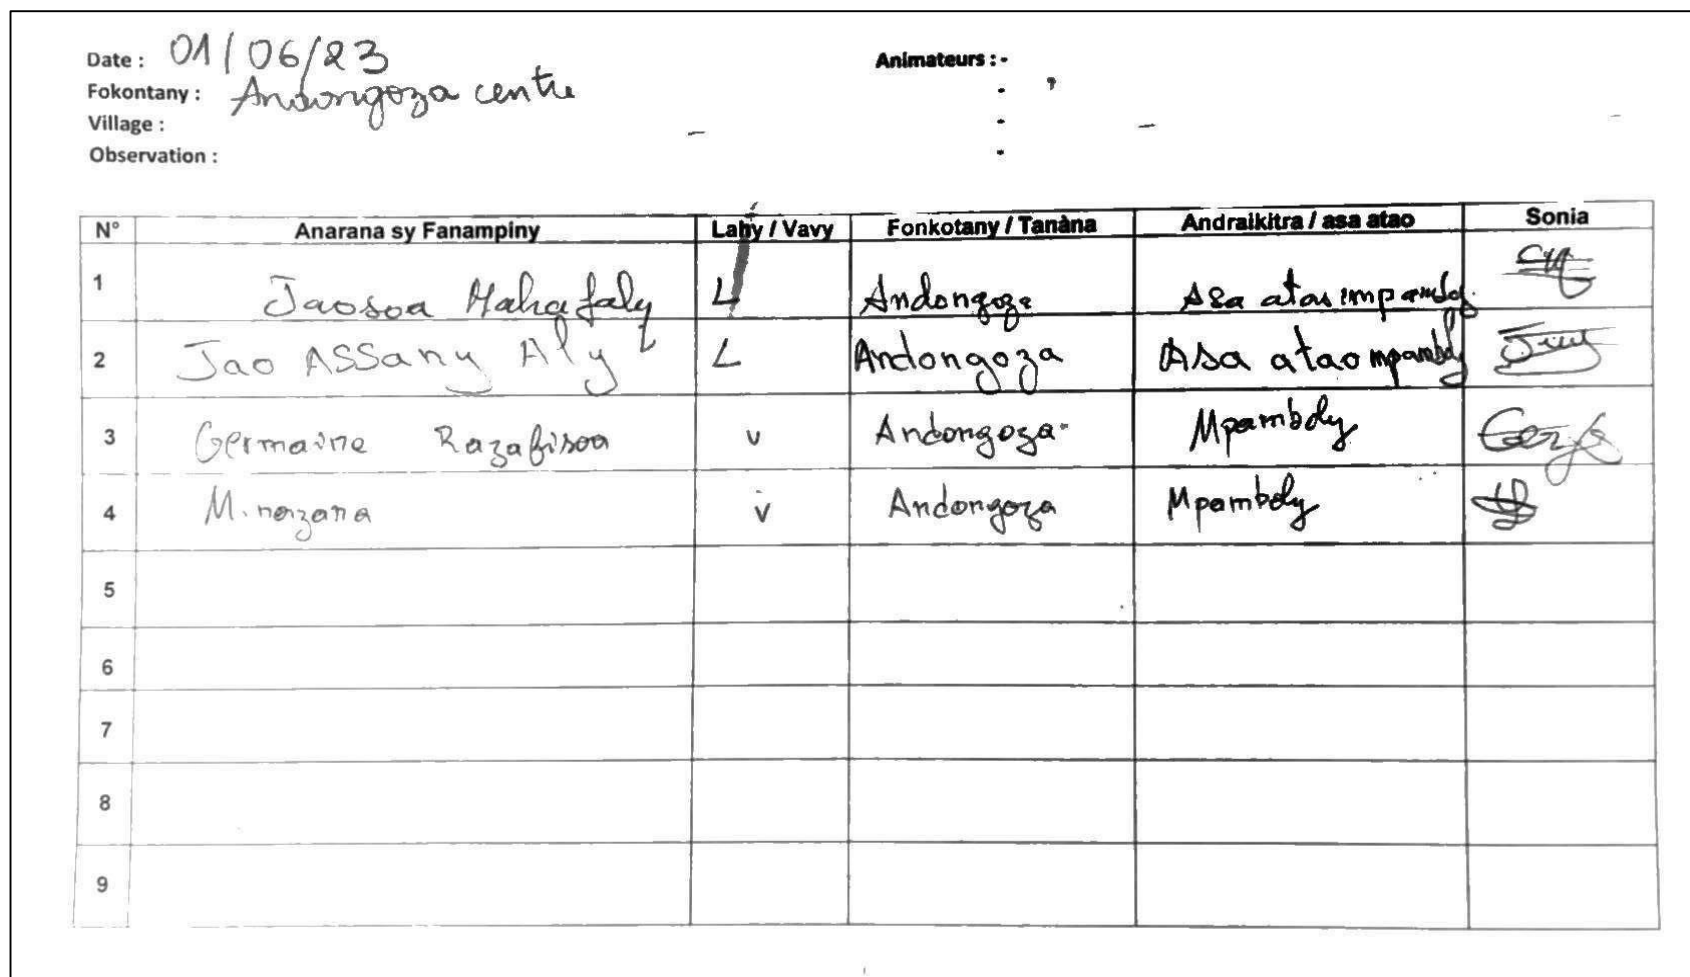 Date : 01/06/23
Animateurs : -
Fokontany : Andongoza centre
Village :
Observation :
N° Anarana sy Fanampiny Lahy / Vavy Fonkotany / Tanàna Andraikitra / asa atao Sonia
1 Jaosoa Mahafaly L Andongoza Asa atao mpamboly
2 Jao ASSany Aly L Andongoza Asa atao mpamboly
3 Germaine Razafisoa V Andongoza Mpamboly
4 M. norzana V Andongoza Mpamboly
5
6
7
8
9